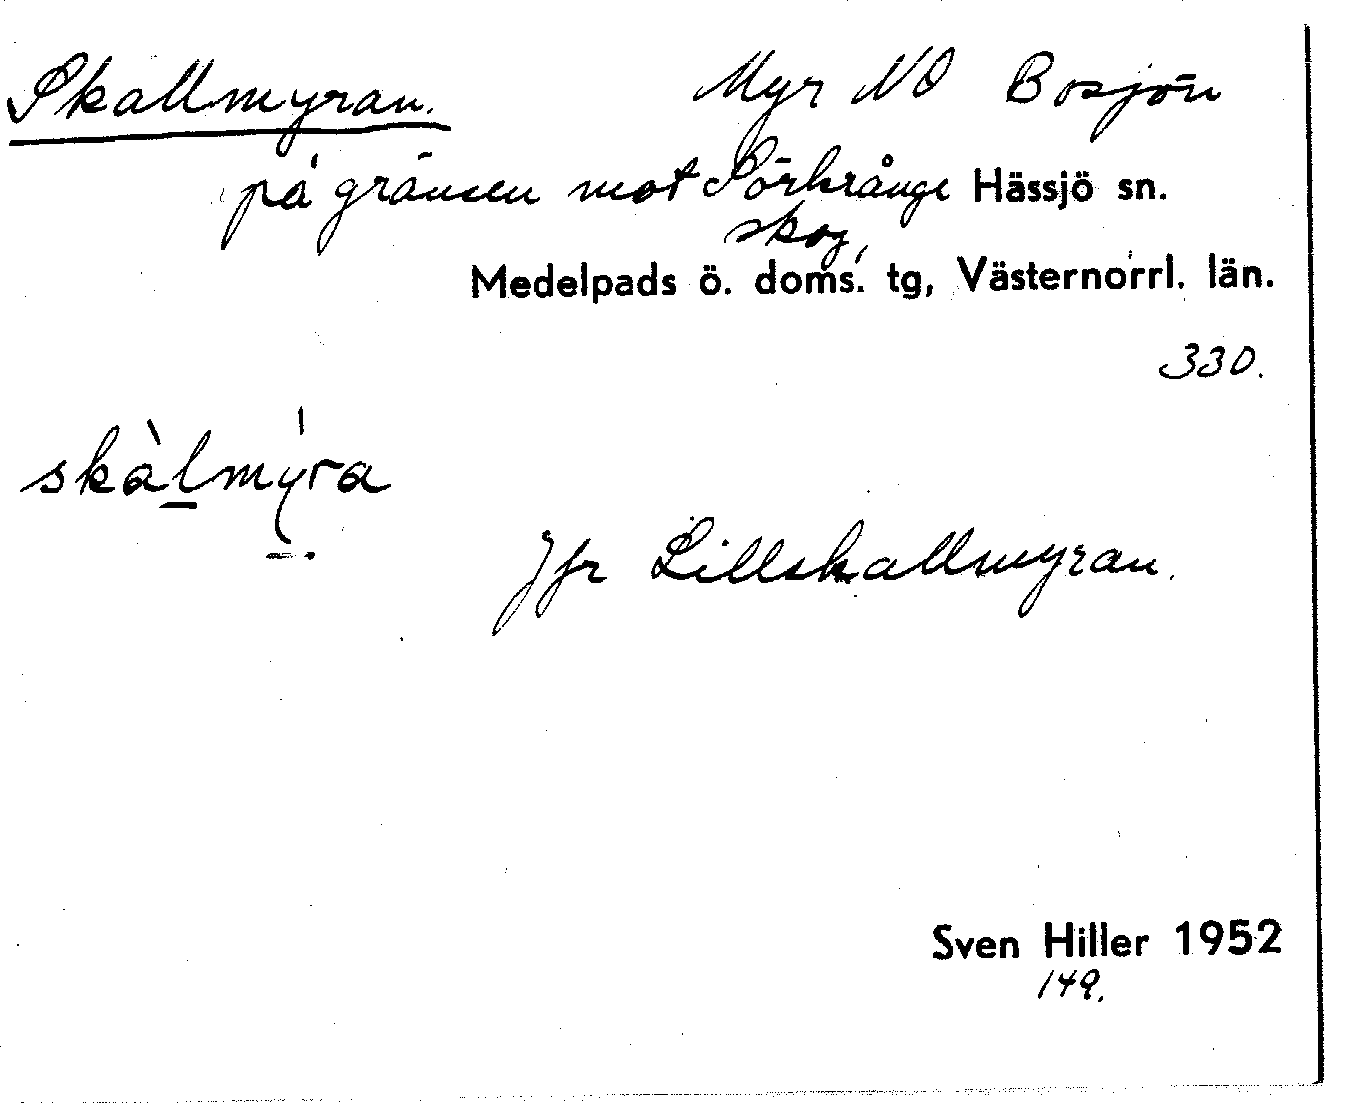 Skallmyran. Myr NO Bosjön
på gränsen mot Sörkrånge Hässjö sn.
skog,
Medelpads ö. doms. tg, Västernorrl. län.
330.
skàl̲mýra
Jfr Lillskallmyran.
Sven Hiller 1952
149.